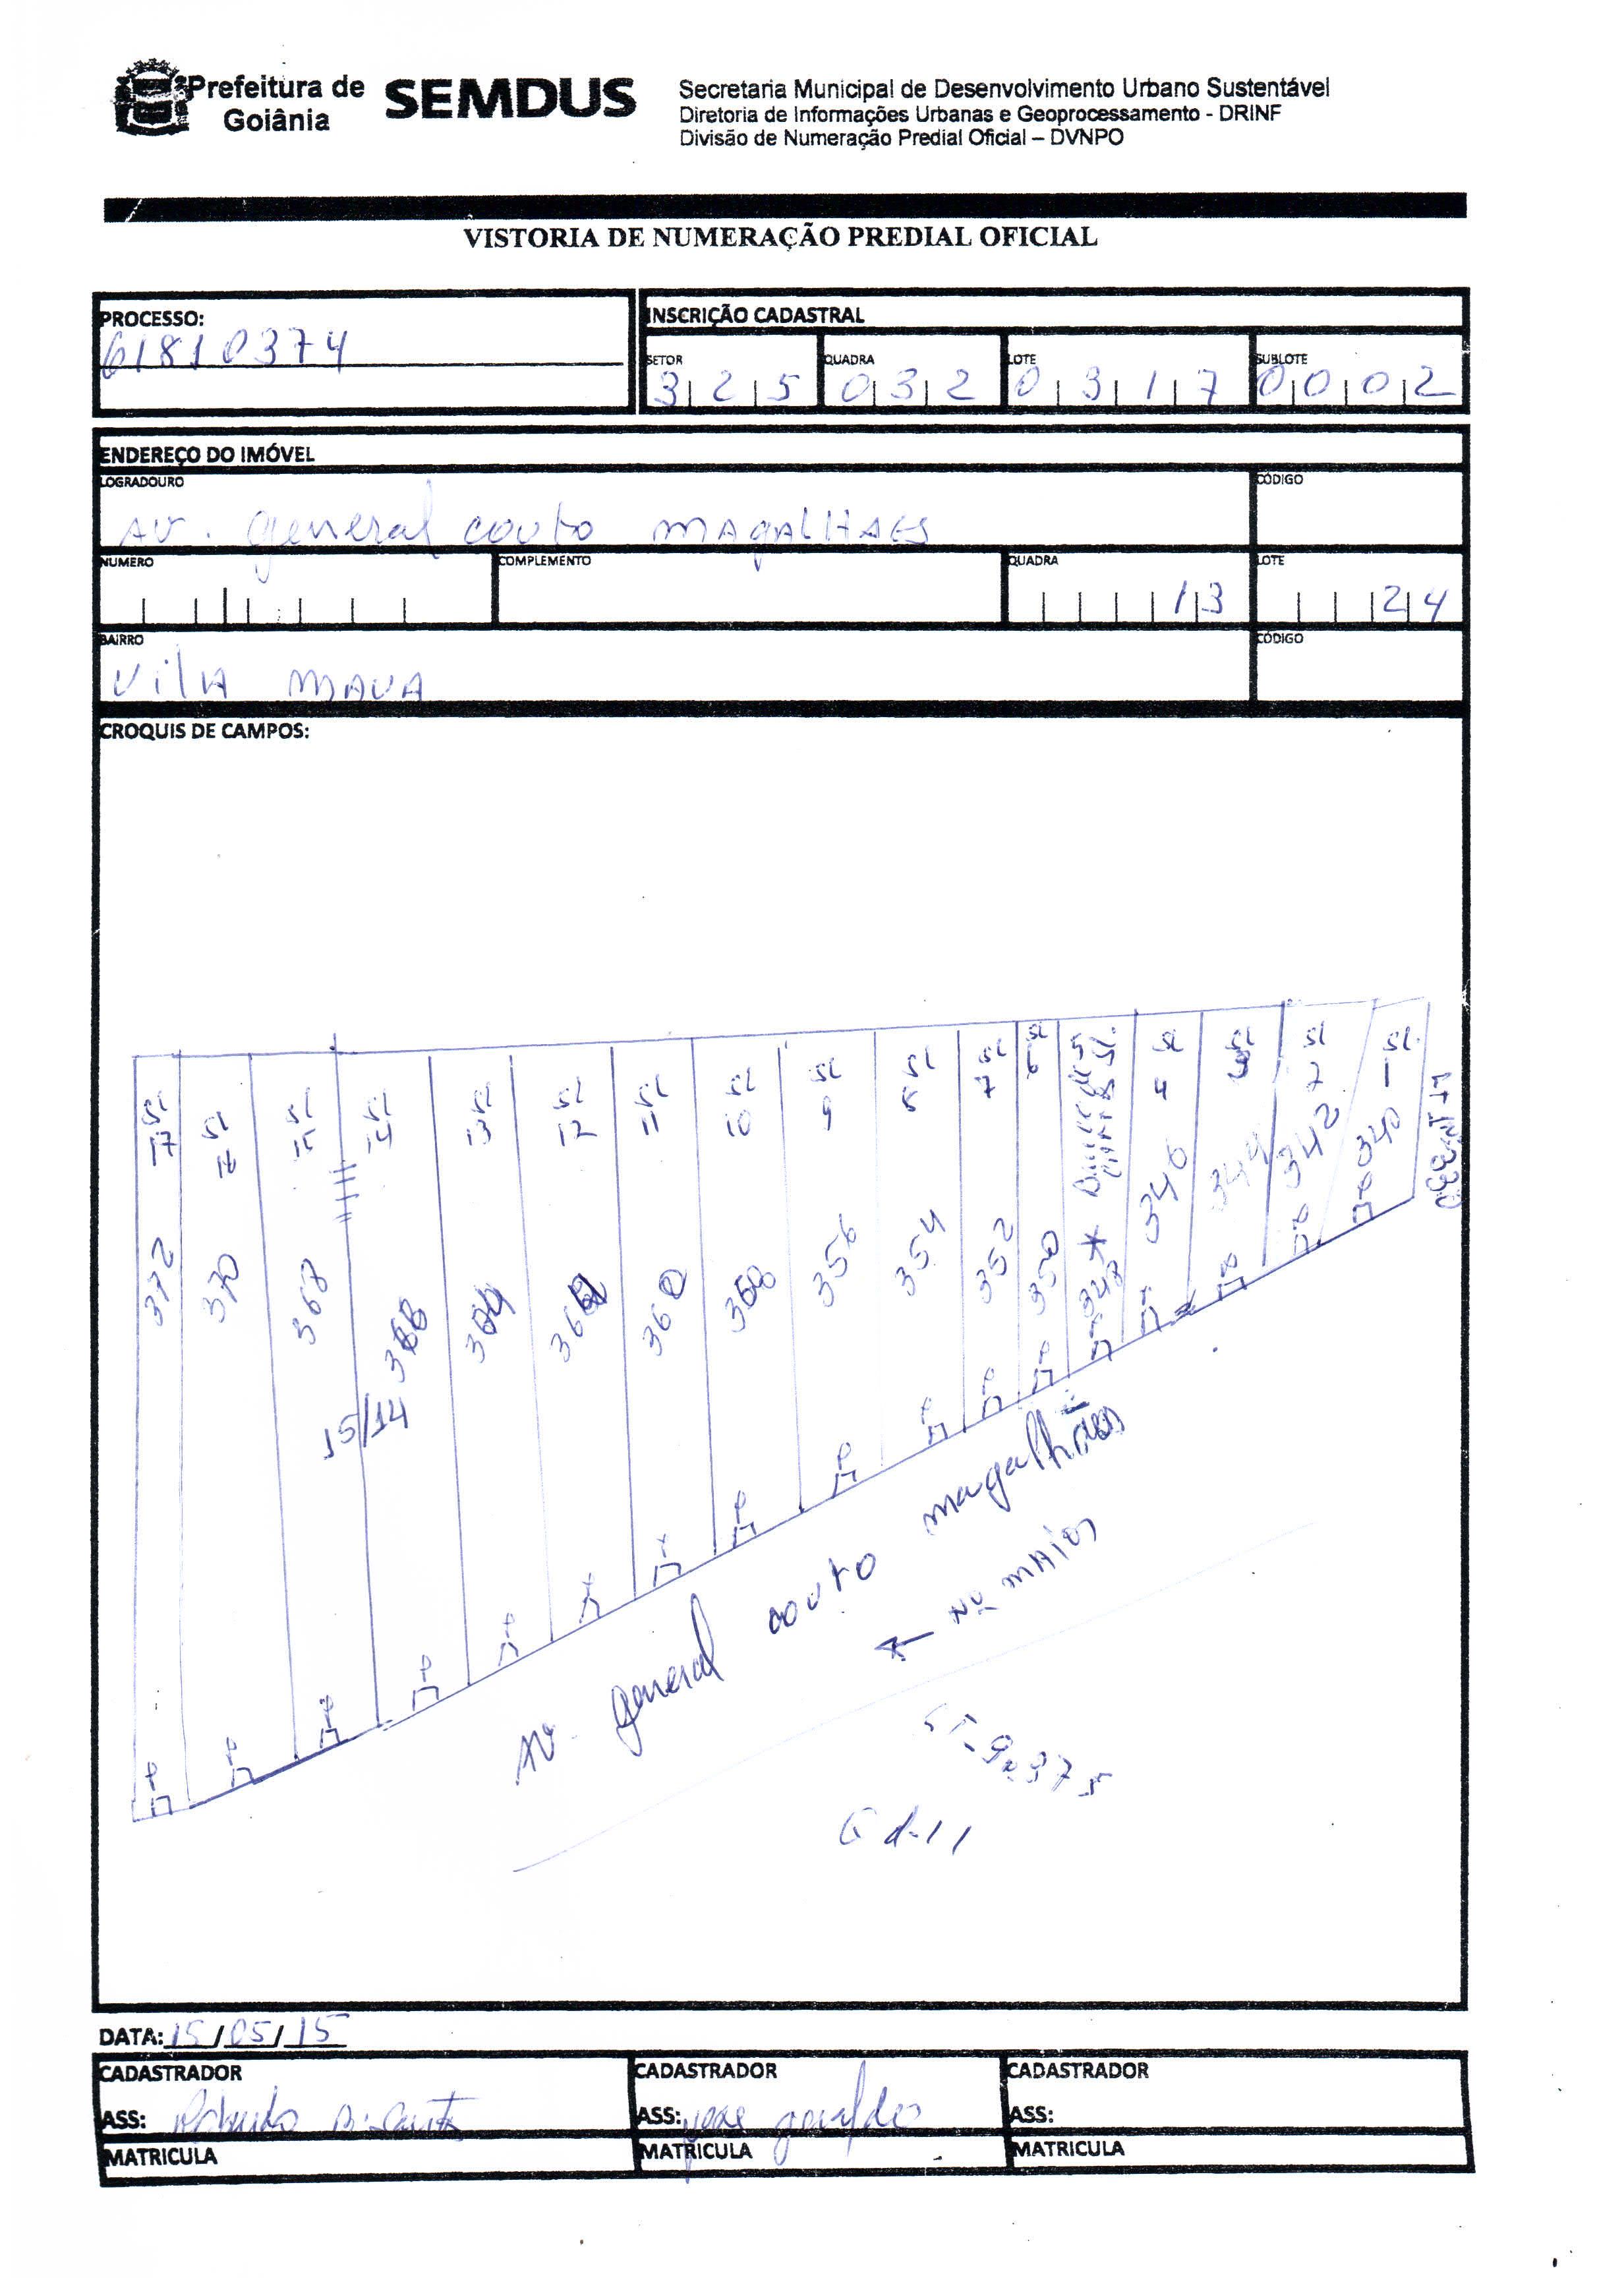 Prefeitura de Goiânia
SEMDUS
Secretaria Municipal de Desenvolvimento Urbano Sustentável
Diretoria de Informações Urbanas e Geoprocessamento - DRINF
Divisão de Numeração Predial Oficial – DVNPO
VISTORIA DE NUMERAÇÃO PREDIAL OFICIAL
PROCESSO:
61810374
INSCRIÇÃO CADASTRAL
SETOR QUADRA LOTE SUBLOTE
325 032 0317 0002
ENDEREÇO DO IMÓVEL
LOGRADOURO CÓDIGO
AV. general couto MAgALHAES
NUMERO COMPLEMENTO QUADRA LOTE
13 24
BAIRRO CÓDIGO
VilA MAUA
CROQUIS DE CAMPOS:
17 sl 372
sl 370
15 sl 368
14 sl
15/14
13 sl 364
12 sl
11 sl 360
10 sl
9 sl 356
sl 354
7 sl 352
6 sl 350
sl. 348
4 sl 346
3 sl 344
sl 342
1 sl. 340
AV. general couto magalhães
← Nº MAIOR
Qd-11
DATA: 15/05/15
CADASTRADOR CADASTRADOR CADASTRADOR
ASS: ASS: geraldo ASS:
MATRICULA MATRICULA MATRICULA